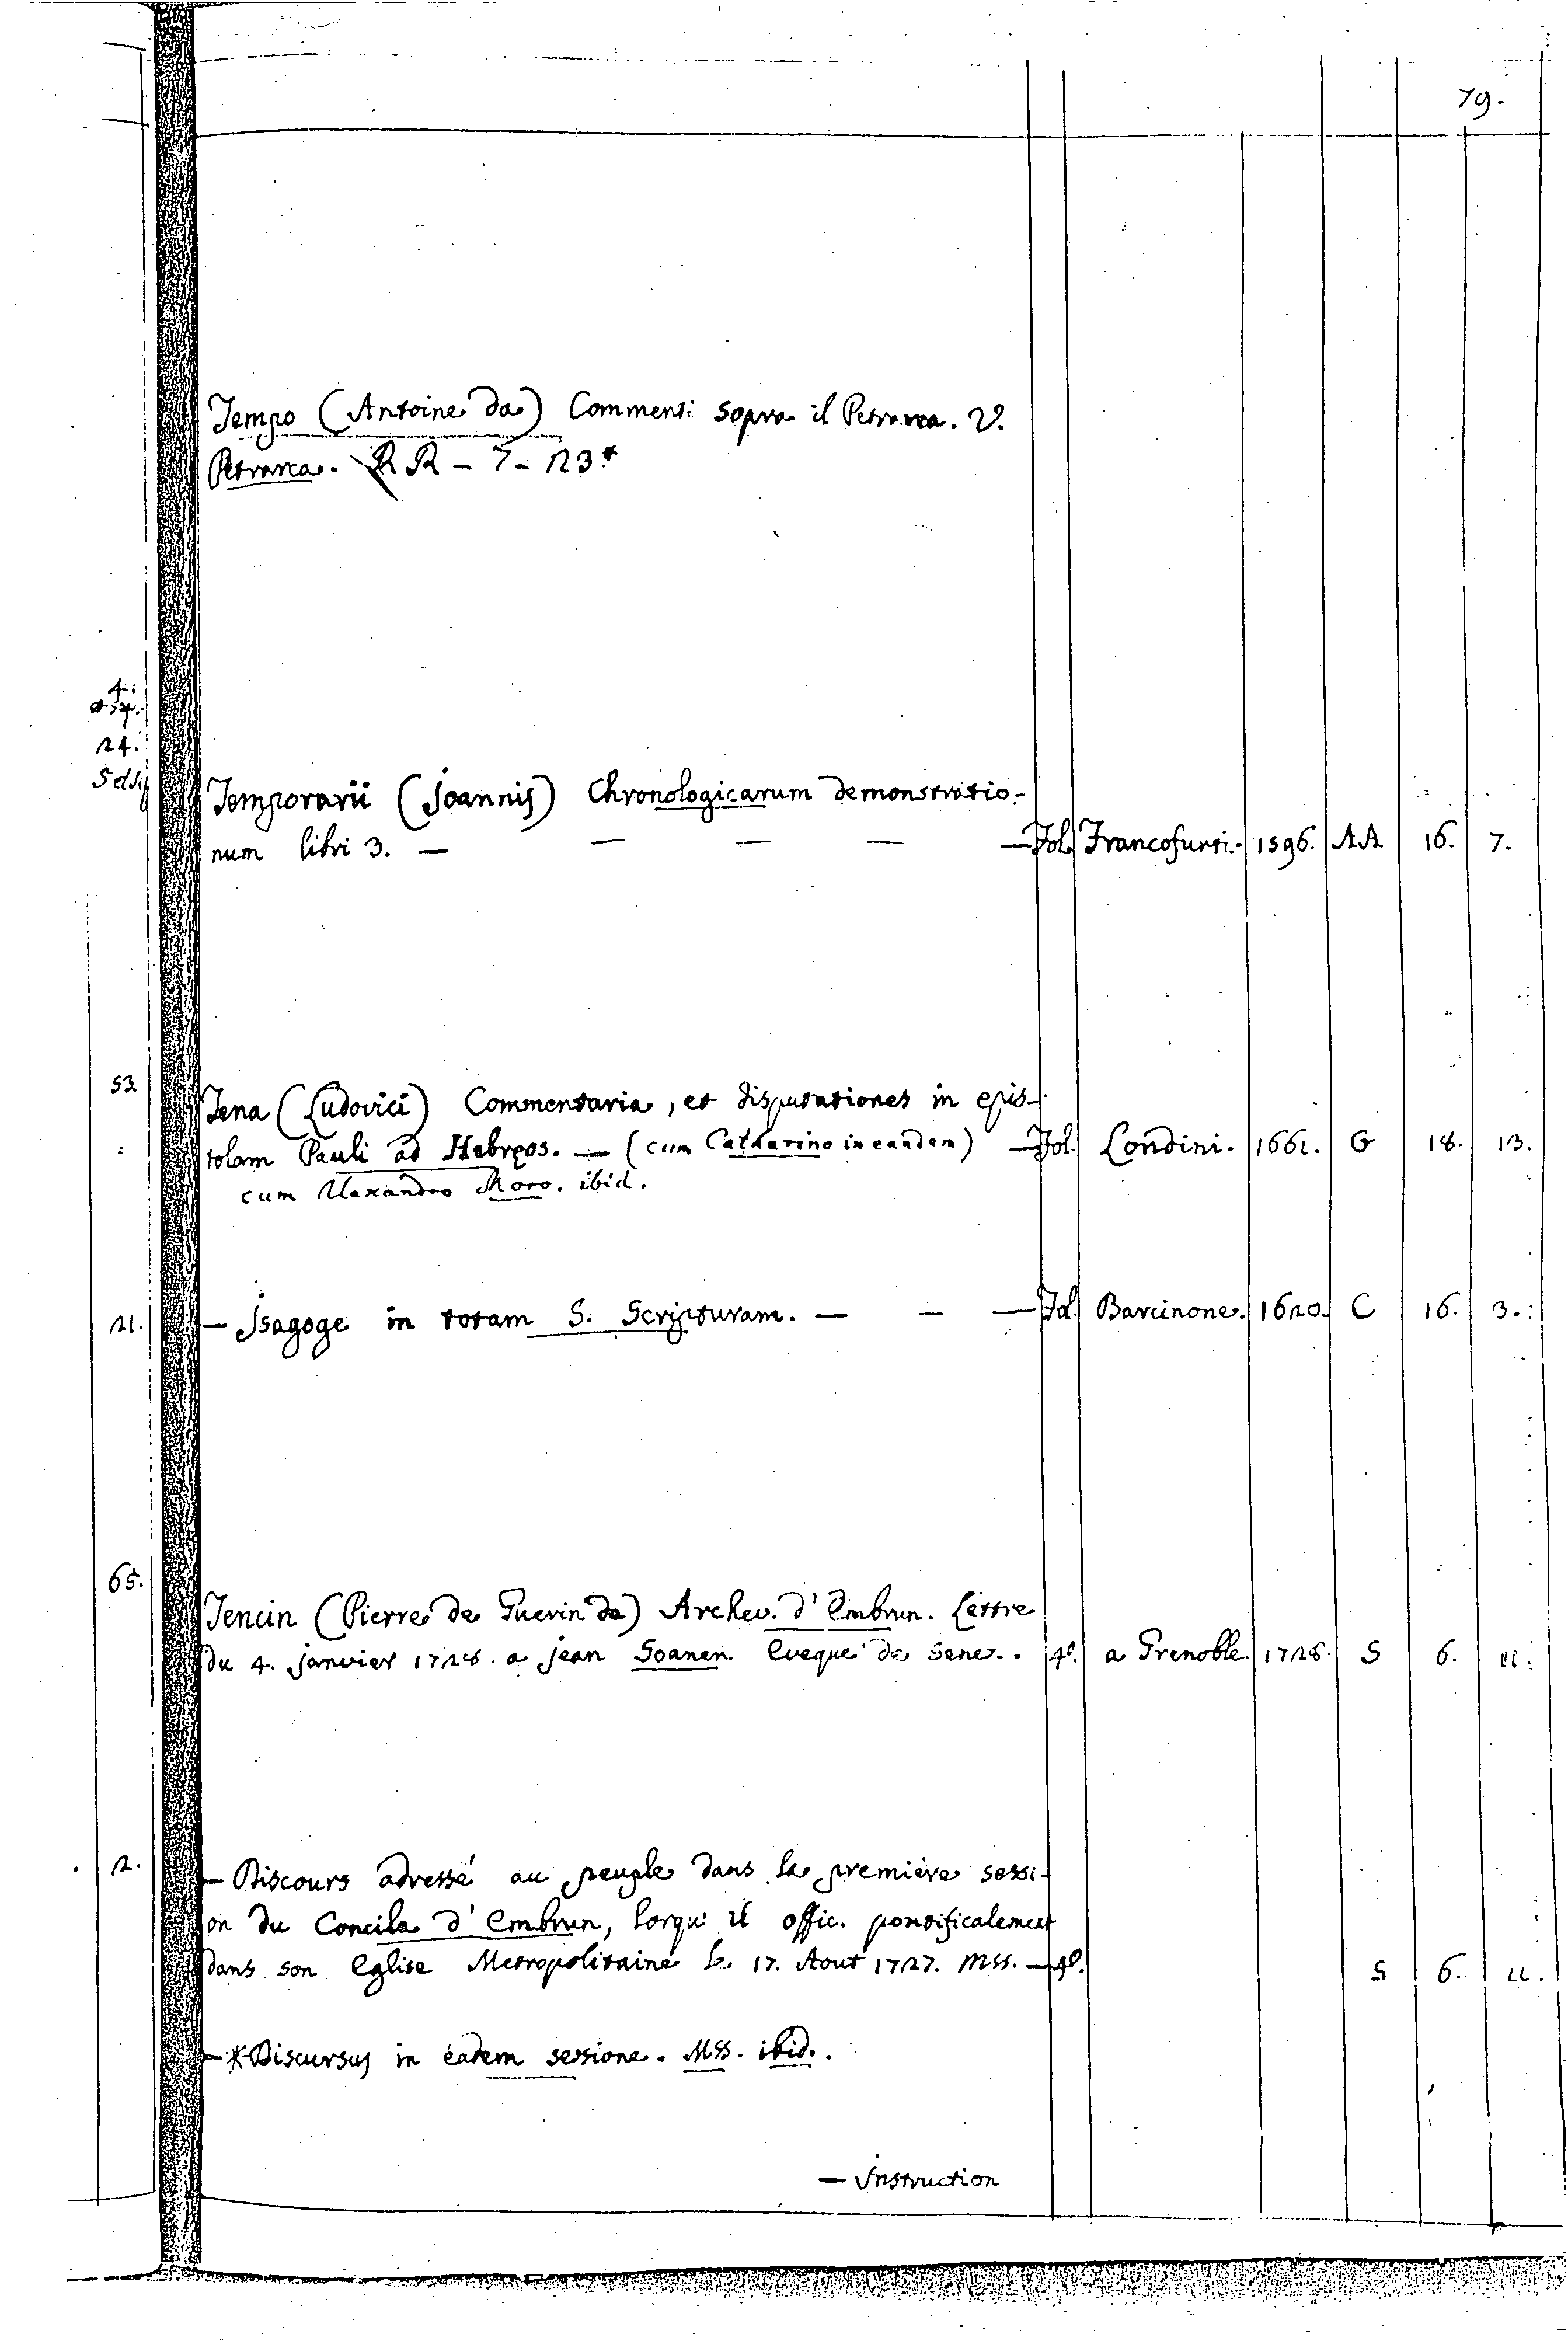 79.
Tempo (Antoine da) Commenti sopra il Petrarca. V.
Petrarca. RR - 7 - 23*
4.
24.
Temporarii (Joannis) Chronologicarum demonstratio-
num libri 3. — — — — — Fol. Francofurti. 1596. AA 16. 7.
53
Tena (Ludovici) Commentaria, et disputationes in epis-
tolam Pauli ad Hebręos. — (cum Catharino in eandem) — Fol. Londini. 1661. G 18. 13.
cum Alexandro Moro. ibid.
21. — Isagoge in totam S. Scripturam. — — — Fol. Barcinone. 1620. C 16. 3.
65.
Tencin (Pierre de Guerin de) Archev. d'Embrun. Lettre
du 4. janvier 1728. a jean Soanen Eveque de Senez. 4º. a Grenoble. 1728. S 6. 11.
2.
— Discours adressé au peuple dans la premiére sessi-
on du Concile d'Embrun, lorqu'il offic. pontificalement
dans son Eglise Metropolitaine le 17. Aout 1727. Mss. — 4º. S 6. 11.
— *Discursus in eadem sessione. MSS. ibid.
— Instruction